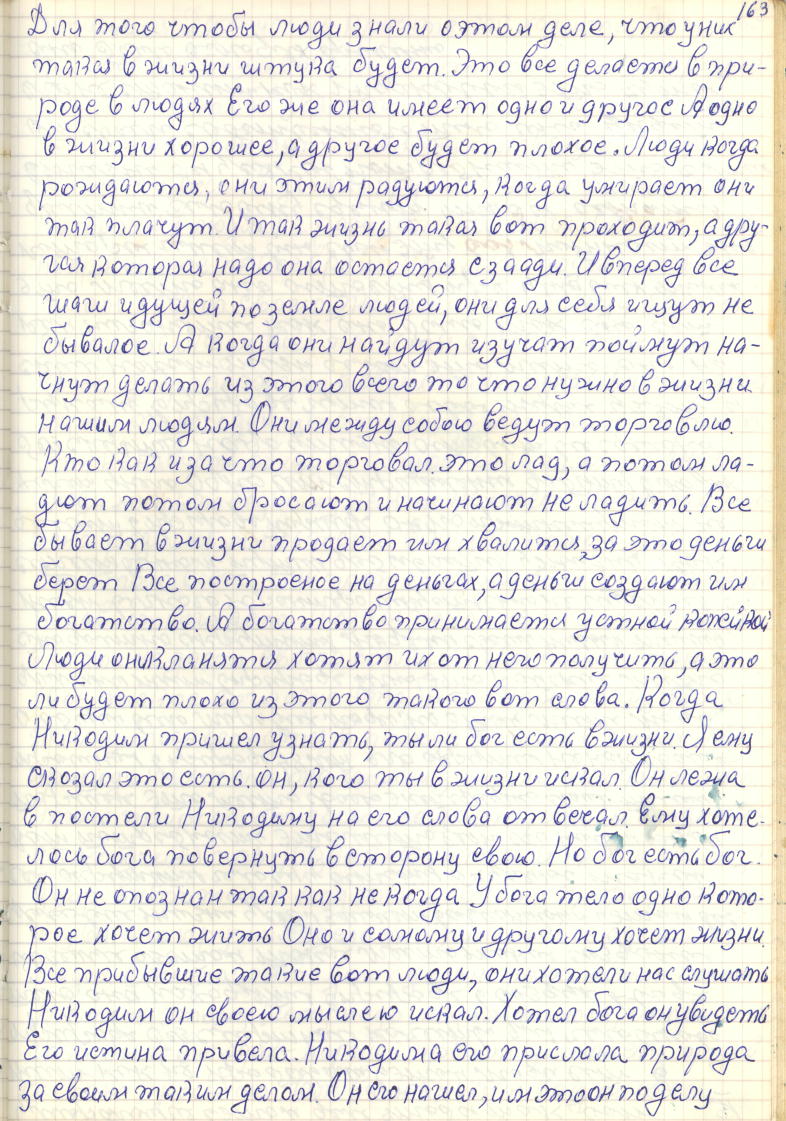 163
Для того чтобы люди знали о этом деле, что у них
такая в жизни штука будет. Это все делается в при-
роде в людях Его же она имеет одно и другое А одно
в жизни хорошее, а другое будет плохое. Люди когда
рождаются, они этим радуются, когда умирает они
так плачут. И так жизнь такая вот проходит, а дру-
гая которая надо она остается сзаади. И вперед все
шаги идущей по земле людей, они для себя ищут не
бывалое. А когда они найдут изучат поймут на-
чнут делать из этого всего то что нужно в жизни
нашим людям. Они между собою ведут торговлю.
Кто как и за что торговал. это лад, а потом ла-
дют потом бросают и начинают не ладить. Все
бывает в жизни продает им хвалится, за это деньги
берет Все построеное на деньгах, а деньги создают им
богатство. А богатство принимается устной копейкой
Люди они кланятся хотят их от него получить, а это
ли будет плохо из этого такого вот слова. Когда
Никодим пришел узнать, ты ли бог есть в жизни. Я ему
сказал это есть. он, кого ты в жизни искал. Он лежа
в постели Никодиму на его слова отвечал. Ему хоте-
лось бога повернуть в сторону свою. Но бог есть бог.
Он не опознан так как некогда У бога тело одно кото-
рое хочет жить Оно и самому и другому хочет жизни.
Все прибывшие такие вот люди, они хотели нас слушать
Никодим он своею мыслею искал. Хотел бога он увидеть
Его истина привела. Никодима его прислала природа
за своим таким делом. Он его нашел, им это он по делу